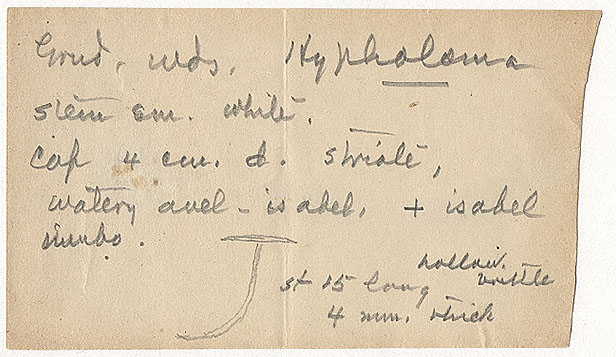 Grnd, wds, Hypholoma
stem em. white.
Cap 4 cm. d. striate,
watery avel - isabel, + isabel
umbo.
hollow.
st 15 long brittle
4 mm. thick